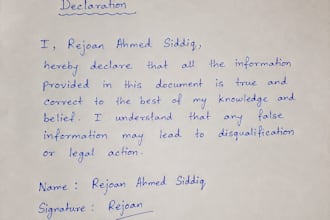 Declaration
I, Rejoan Ahmed Siddiq,
hereby declare that all the information
Provided in this document is true and
correct to the best of my knowledge and
belief. I understand that any false
information may lead to disqualification
or legal action.
Name : Rejoan Ahmed Siddiq
Signature : Rejoan